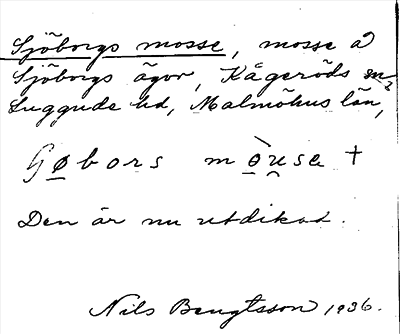 Sjöborgs mosse, mosse å
Sjöborgs ägor, Kågeröds sn,
Luggude hd, Malmöhus län,
Gøbors mòusa †
Den är nu utdikad.
Nils Bengtsson 1936.